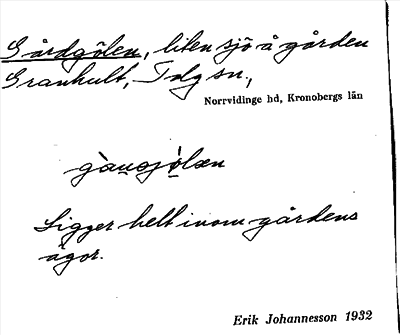 Gårdgölen, liten sjö å gården
Granhult, Tolg sn,
Norrvidinge hd, Kronobergs län
Ligger helt inom gårdens
ägor.
Erik Johannesson 1932